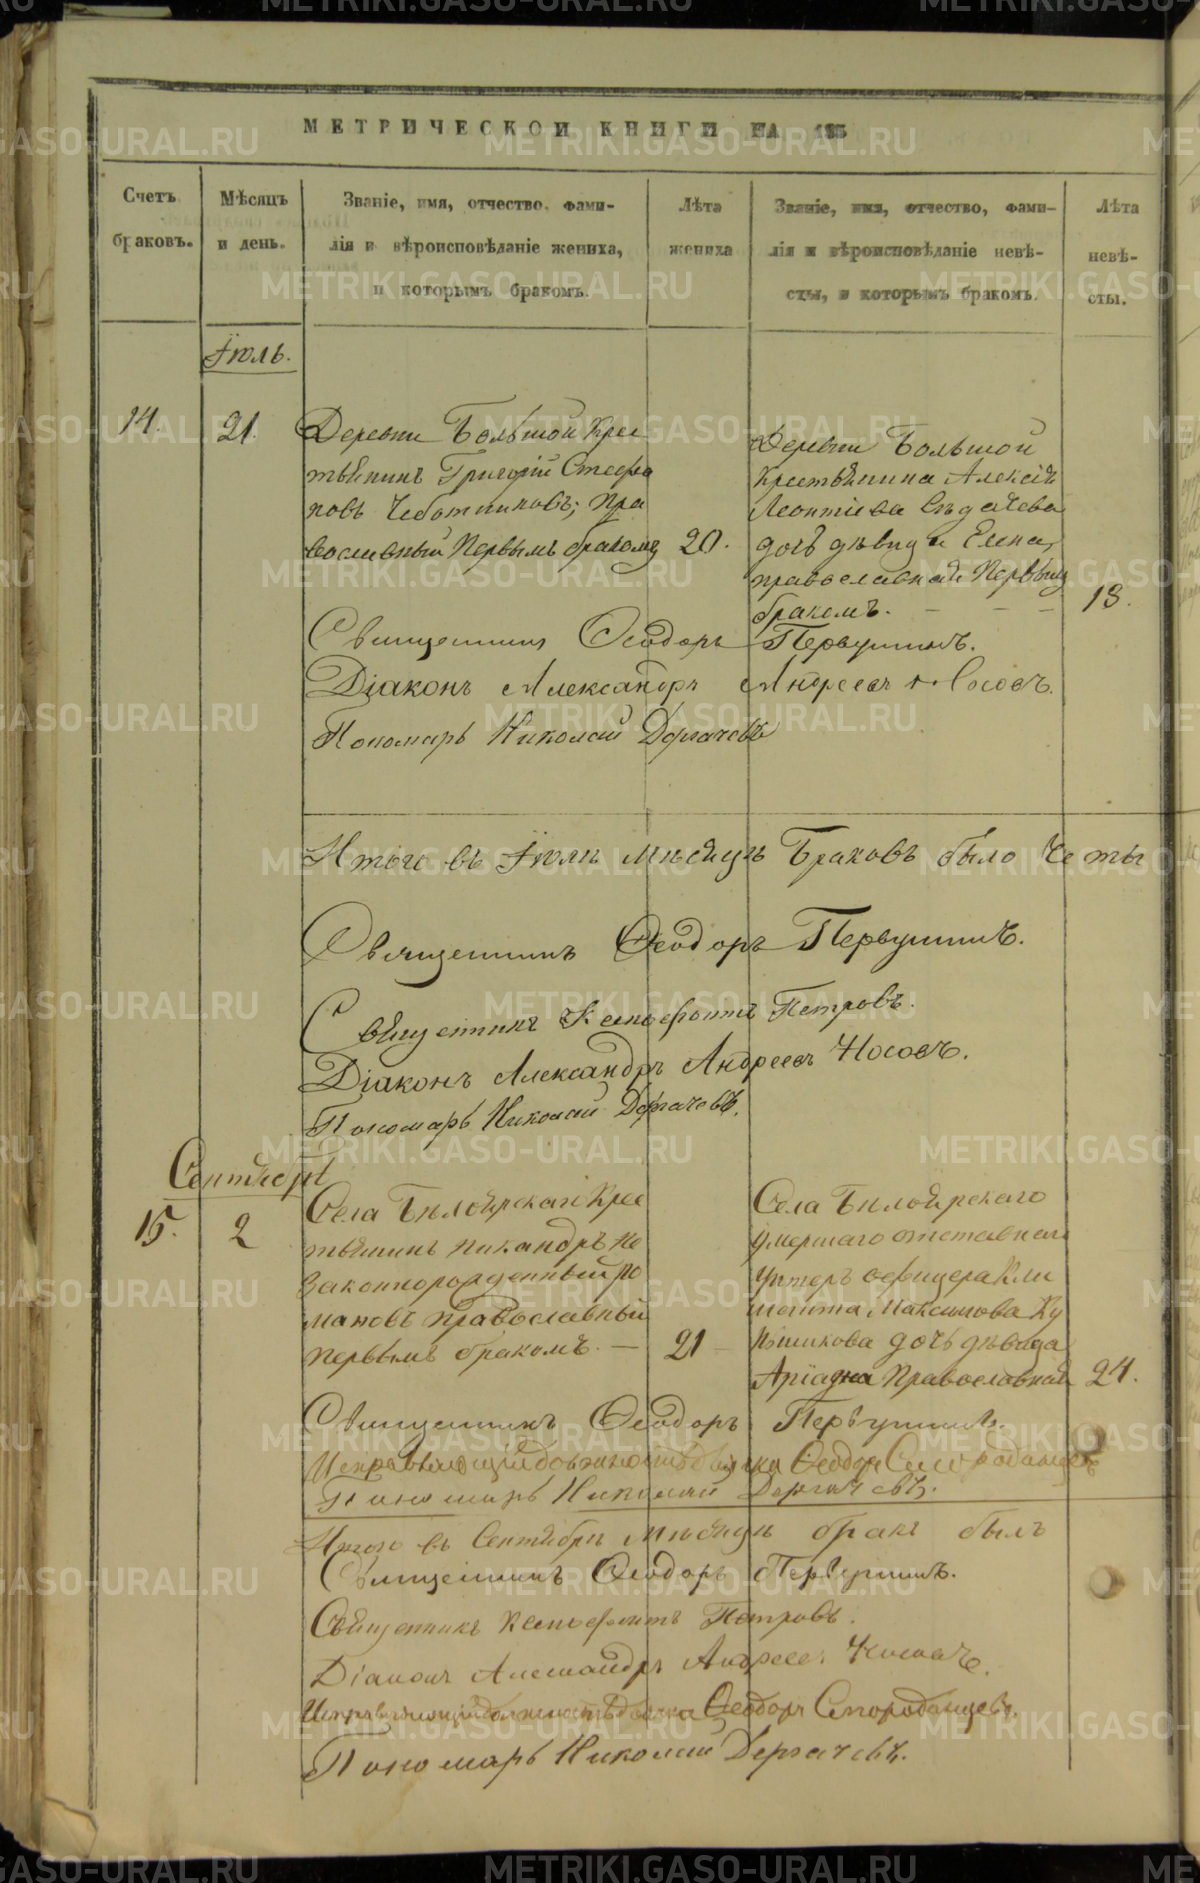 МЕТРИЧЕСКОЙ КНИГИ НА 185
Счетъ браковъ.
Мѣсяцъ и день.
Званіе, имя, отчество, фами-
лія и вѣроисповѣданіе жениха,
и которымъ бракомъ.
Лѣта
жениха
Званіе, имя, отчество, фами-
лія и вѣроисповѣданіе невѣ-
сты, и которымъ бракомъ.
Лѣта
невѣ-
сты.
Іюль.
14.
21.
Деревни Большой Крес
тьянинъ Григорій Стефа
новъ Чеботниковъ; пра
вославный первымъ бракомъ
20.
Деревни Большой
Крестьянина Алексія
Леонтіева Сѣдачева
дочь дѣвица Елена,
православная первымъ
бракомъ.
18.
Священникъ Ѳеодоръ Первушинъ.
Діаконъ Александръ Андреевъ Носовъ.
Пономарь Николай Дергачевъ
Итого въ Іюлѣ мѣсяцѣ Браковъ было Четы
Священникъ Ѳеодоръ Первушинъ.
Священникъ Ксенофонтъ Петровъ.
Діаконъ Александръ Андреевъ Носовъ.
Пономарь Николай Дергачевъ.
Сентябрь
15.
2
Села Бѣлоярскаго Крес
тьянинъ Никандръ не
законнорожденный Ро
мановъ православный
первымъ бракомъ. —
21 —
Села Бѣлоярскаго
умершаго отставнаго
унтеръ офицера Кли
мента Максимова Ку
дочь дѣвица
Аріадна Православная
24.
Священникъ Ѳеодоръ Первушинъ.
Исправляющій должность дьячка Ѳеодоръ
Пономарь Николай Дергачевъ.
Итого въ Сентябрѣ мѣсяцѣ бракъ былъ
Священникъ Ѳеодоръ Первушинъ.
Священникъ Ксенофонтъ Петровъ.
Діаконъ Александръ Андреевъ Носовъ.
Исправляющій должность дьячка Ѳеодоръ
Пономарь Николай Дергачевъ.
METRIKI.GASO-URAL.RU